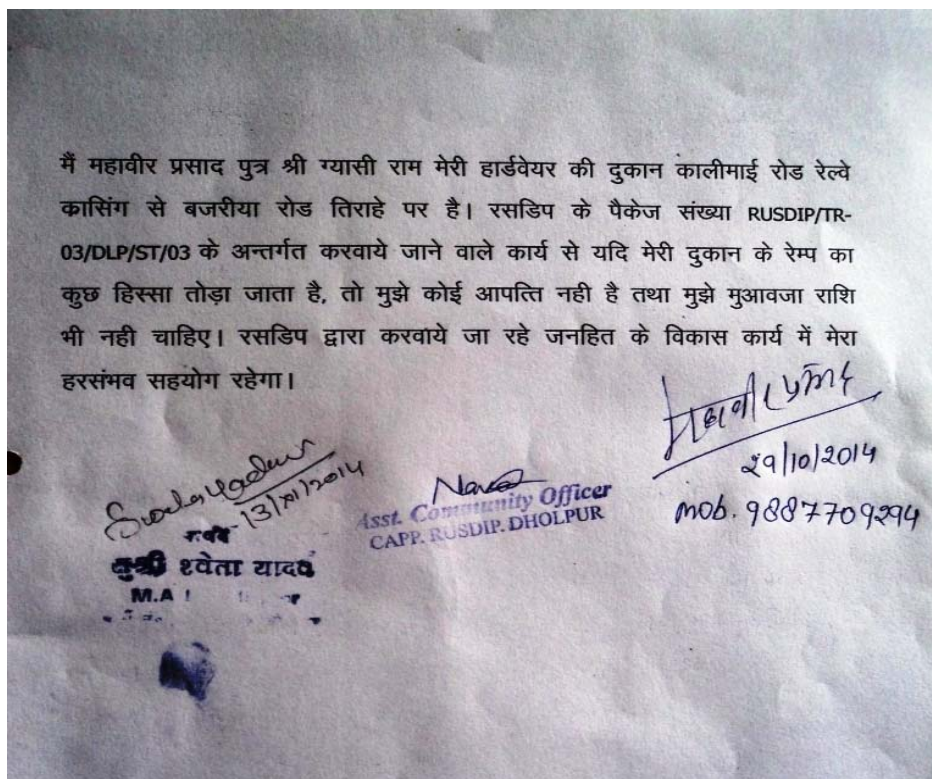 मैं महावीर प्रसाद पुत्र श्री ग्यासी राम मेरी हार्डवेयर की दुकान कालीमाई रोड रेल्वे
कासिंग से बजरीया रोड तिराहे पर है। रसडिप के पैकेज संख्या RUSDIP/TR-
03/DLP/ST/03 के अन्तर्गत करवाये जाने वाले कार्य से यदि मेरी दुकान के रेम्प का
कुछ हिस्सा तोड़ा जाता है, तो मुझे कोई आपत्ति नही है तथा मुझे मुआवजा राशि
भी नही चाहिए। रसडिप द्वारा करवाये जा रहे जनहित के विकास कार्य में मेरा
हरसंभव सहयोग रहेगा।
29/10/2014
mob. 9887709294
Asst. Community Officer
CAPP. RUSDIP. DHOLPUR
13/XI/2014
सुश्री श्वेता यादव
M.A